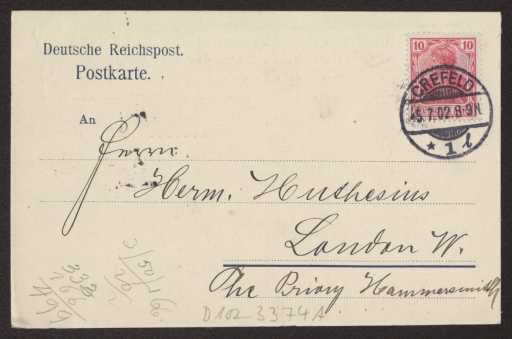 Deutsche Reichspost.
Postkarte.
10 10
CREFELD
5.7.02.8-9N
* 1 l
An
Herrn
Herm. Muthesius
London W.
The Priory Hammersmith
D102-3374A